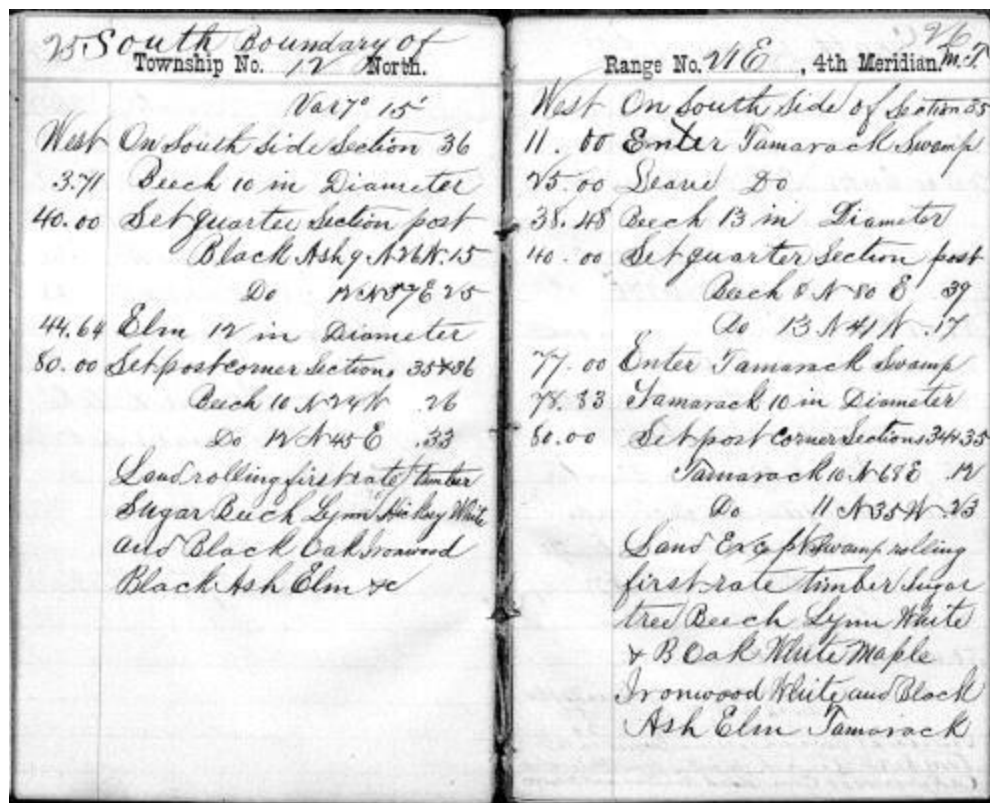 25 South Boundary of
Township No. 12 North.
Var 7° 15'
West On South side Section 36
3.71 Beech 10 in Diameter
40.00 Set quarter Section post
Black Ash 9 N 26 W. 15
Do 12 N 57 E 25
44.64 Elm 12 in Diameter
80.00 Set post corner Sections 35 & 36
Beech 10 N 24 W .26
Do 12 N 45 E .33
Land rolling first rate timber
Sugar Beech Lynn Hickory White
and Black Oak Ironwood
Black Ash Elm &c
26
Range No. 21 E, 4th Meridian. M.T.
West On South side of Section 35
11.00 Enter Tamarack Swamp
25.00 Leave Do
38.48 Beech 13 in Diameter
40.00 Set quarter Section post
Beech 8 N 80 E .39
Do 13 N 41 W .17
77.00 Enter Tamarack Swamp
78.33 Tamarack 10 in Diameter
80.00 Set post Corner Sections 34 & 35
Tamarack 10 N 68 E .12
Do 11 N 35 W .23
Land Except Swamp rolling
first rate timber Sugar
tree Beech Lynn White
& B Oak White Maple
Ironwood White and Black
Ash Elm Tamarack